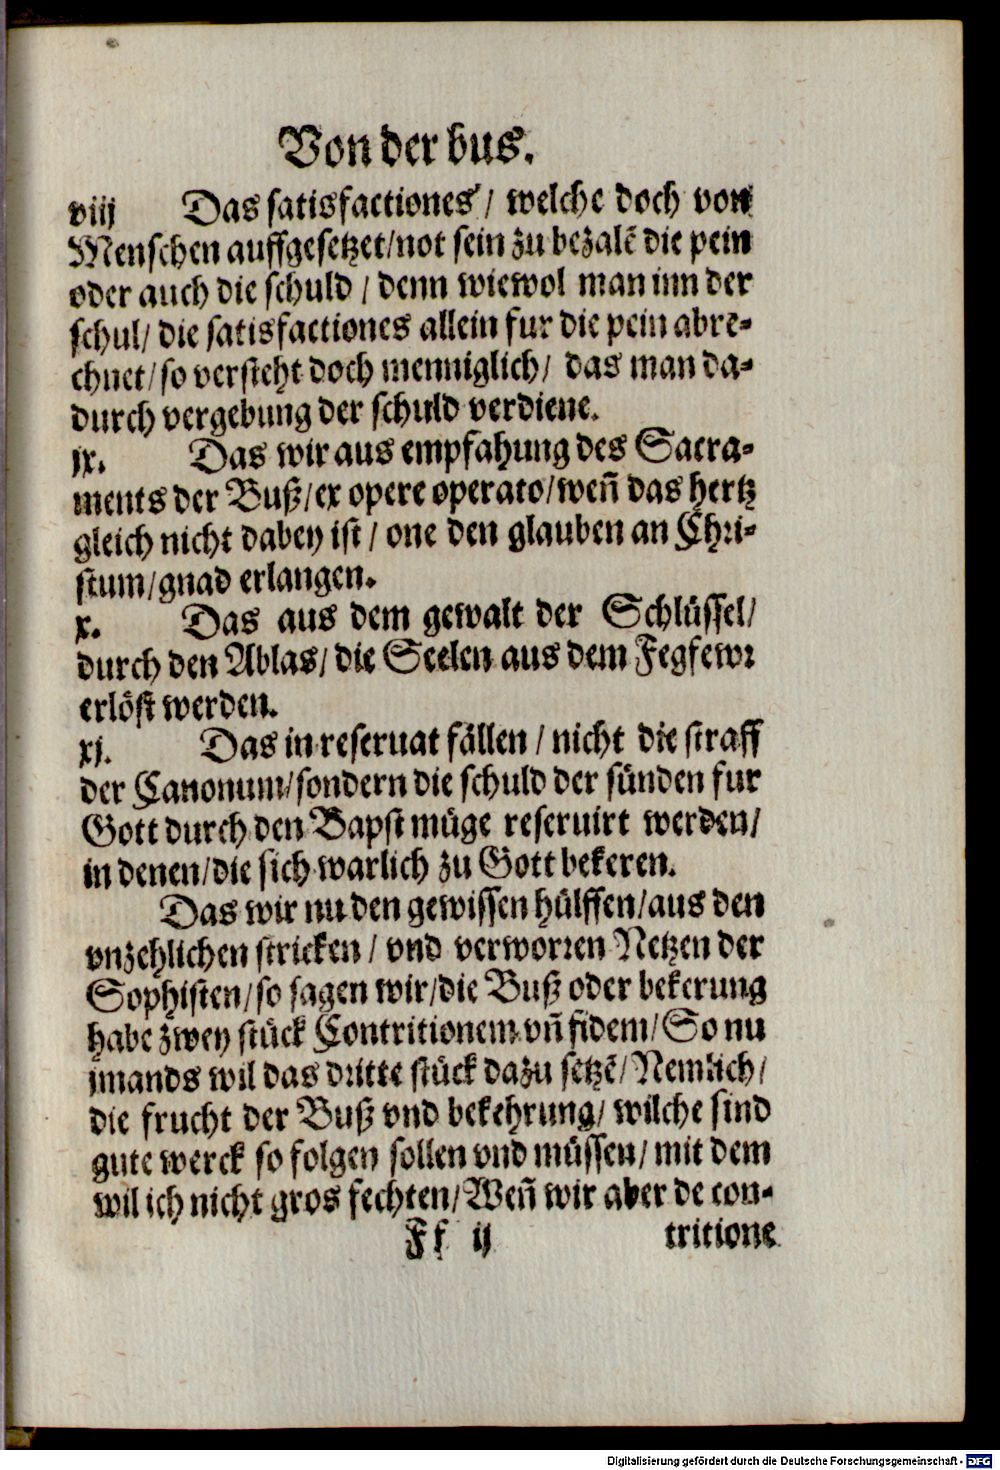 Von der bus.
viij Das satisfactiones / welche doch von
Menschen auffgesetzet/not sein zu bezalē die pein
oder auch die schuld / denn wiewol man inn der
schul/ die satisfactiones allein fur die pein abre-
chnet/so versteht doch menniglich/ das man da-
durch vergebung der schuld verdiene.
ix. Das wir aus empfahung des Sacra-
ments der Buß/ex opere operato/weñ das hertz
gleich nicht dabey ist / one den glauben an Chri-
stum/gnad erlangen.
x. Das aus dem gewalt der Schlüssel/
durch den Ablas/ die Seelen aus dem Fegfewr
erlöst werden.
xj. Das in reseruat fällen / nicht die straff
der Canonum/sondern die schuld der sünden fur
Gott durch den Bapst müge reseruirt werden/
in denen/die sich warlich zu Gott bekeren.
Das wir nu den gewissen hülffen/aus den
vnzehlichen stricken / vnd verworren Netzen der
Sophisten/so sagen wir/die Buß oder bekerung
habe zwey stück Contritionem vñ fidem/So nu
jmands wil das dritte stück dazu setzē/Nemlich/
die frucht der Buß vnd bekehrung/ wilche sind
gute werck so folgen sollen vnd müssen/ mit dem
wil ich nicht gros fechten/Weñ wir aber de con-
Ff ij tritione
Digitalisierung gefördert durch die Deutsche Forschungsgemeinschaft - DFG